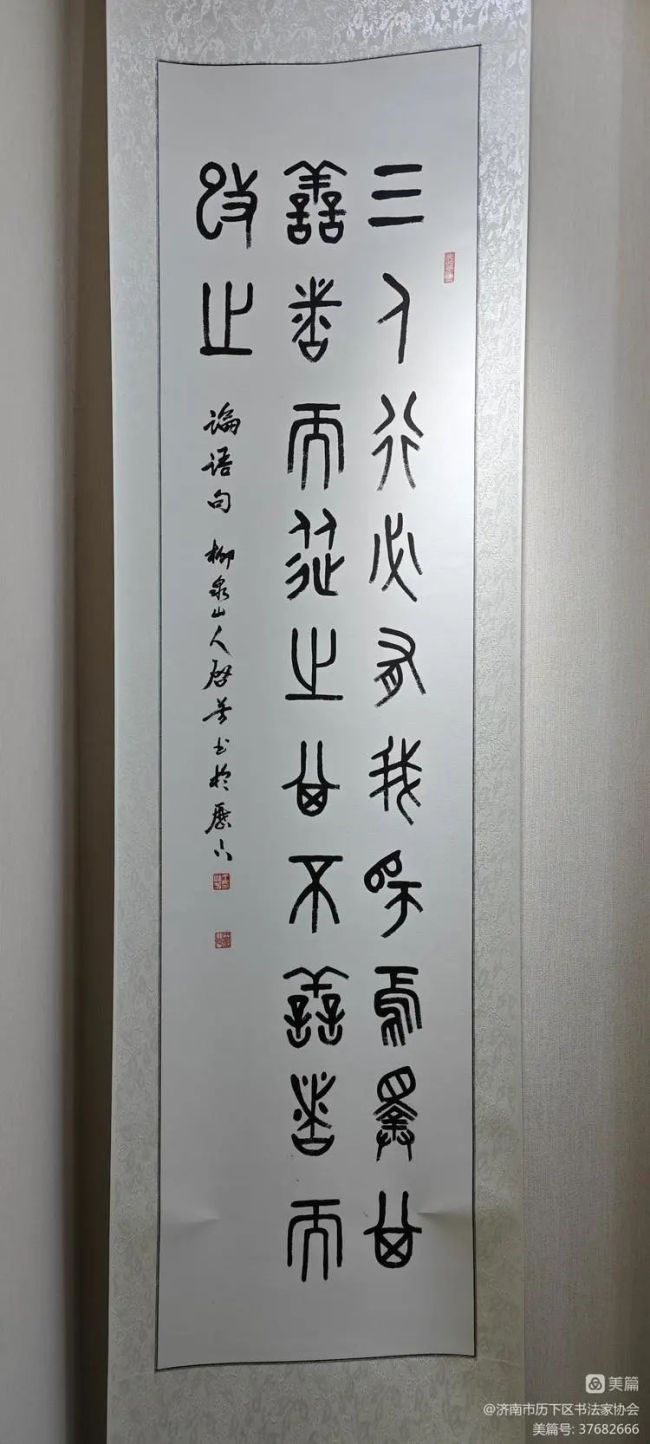 三人行必有我师焉择其
善者而从之其不善者而
改之
论语句 柳泉山人启芳书于历下
美篇
@济南市历下区书法家协会
美篇号: 37682666